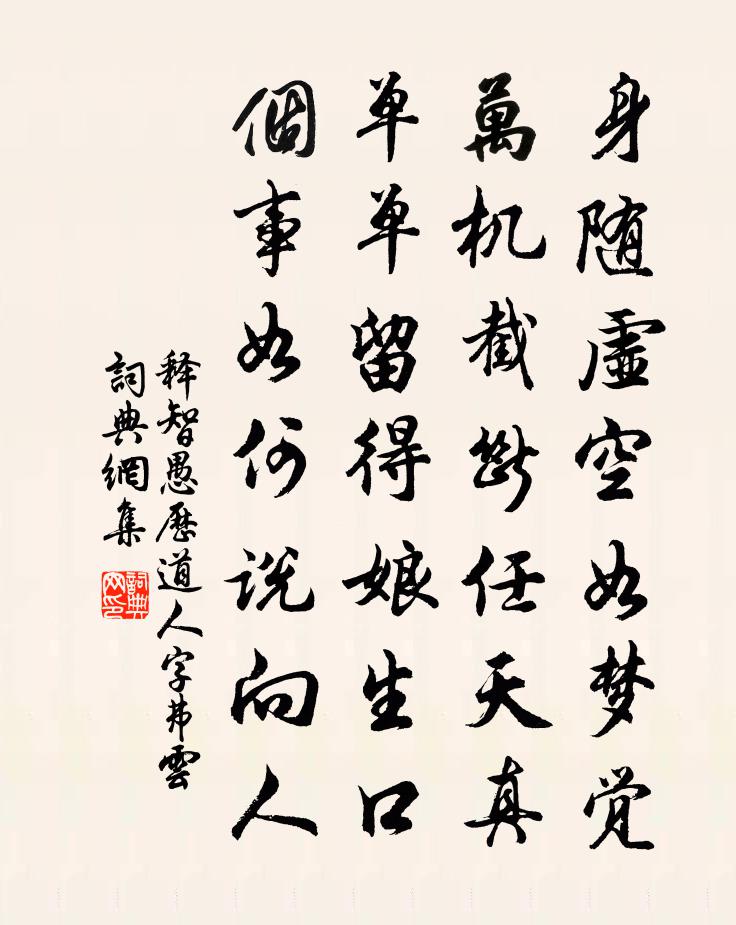 身随虚空如梦觉
萬机截断任天真
单单留得娘生口
個事如何说向人
释智愚歷道人字弗雲
詞典網集
詞典网印